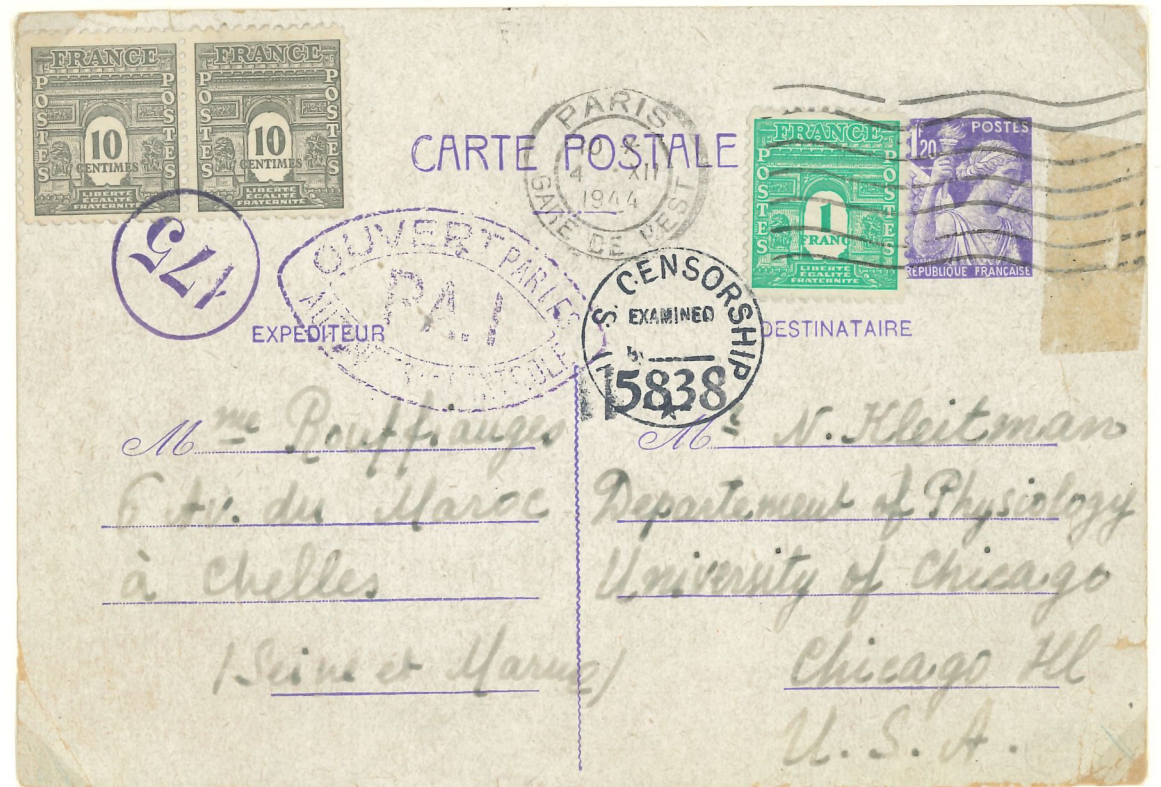 FRANCE
POSTES
POSTES
10
CENTIMES
LIBERTÉ
ÉGALITÉ
FRATERNITÉ
FRANCE
POSTES
POSTES
10
CENTIMES
LIBERTÉ
ÉGALITÉ
FRATERNITÉ
CARTE POSTALE
PARIS
4 XII
1944
GARE DE L'EST
FRANCE
POSTES
POSTES
1
FRANC
LIBERTÉ
ÉGALITÉ
FRATERNITÉ
POSTES
1F
20
RÉPUBLIQUE FRANÇAISE
175
OUVERT PAR LES
P.A.1
U.S. CENSORSHIP
EXAMINED
By
5838
EXPÉDITEUR
DESTINATAIRE
Mme Rouffranges
6 Av. du Maroc
à Chelles
(Seine et Marne)
Mr N. Kleitman
Departement of Physiology
University of Chicago
Chicago Ill
U. S. A.